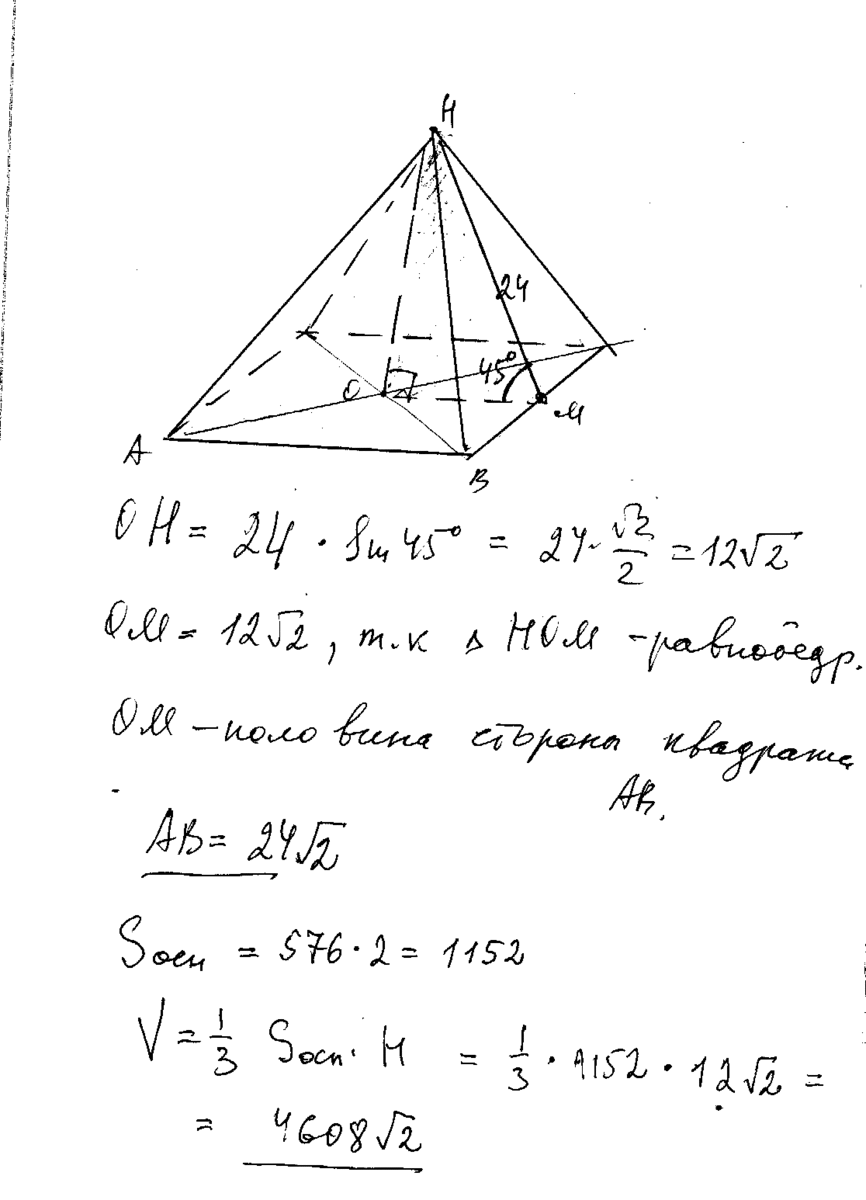 H
24
45°
O
M
A
B
OH = 24 · Sin 45° = 24 · √2/2 = 12√2
OM = 12√2, т.к Δ HOM - равнобедр.
OM - половина стороны квадрата
AB.
AB = 24√2
Sосн = 576 · 2 = 1152
V = 1/3 Sосн · H = 1/3 · 1152 · 12√2 =
= 4608√2